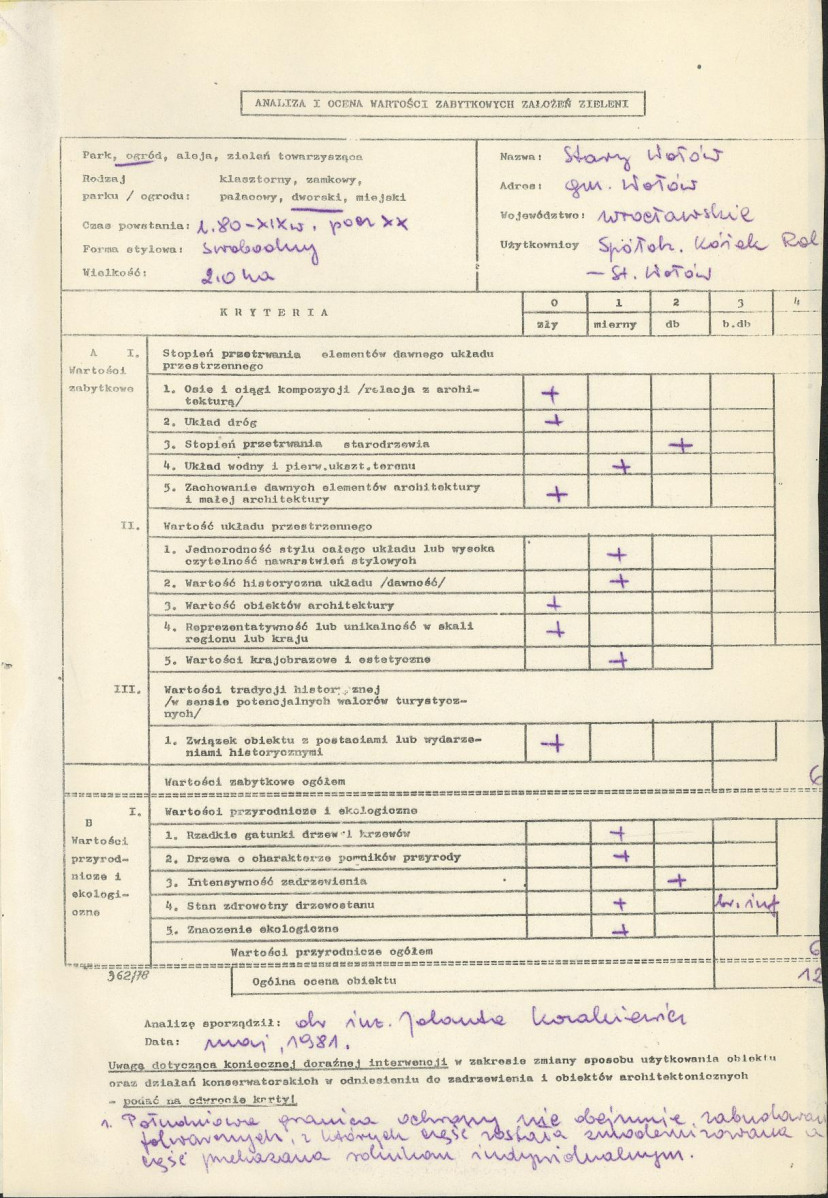 ANALIZA I OCENA WARTOŚCI ZABYTKOWYCH ZAŁOŻEŃ ZIELENI
Park, ogród, aleja, zieleń towarzysząca
Rodzaj klasztorny, zamkowy,
parku / ogrodu: pałacowy, dworski, miejski
Czas powstania: l. 80-XIX w. pocz XX
Forma stylowa: swobodny
Wielkość: 2,0 ha
Nazwa: Stary Wołów
Adres: gm. Wołów
Województwo: wrocławskie
Użytkownicy Spółdz. Kółek Rol
- St. Wołów
KRYTERIA 0 1 2 3 4
zły mierny db b.db
A I. Stopień przetrwania elementów dawnego układu
Wartości przestrzennego
zabytkowe 1. Osie i ciągi kompozycji /relacja z archi-
tekturą/ +
2. Układ dróg +
3. Stopień przetrwania starodrzewia +
4. Układ wodny i pierw.ukszt.terenu +
5. Zachowanie dawnych elementów architektury
i małej architektury +
II. Wartość układu przestrzennego
1. Jednorodność stylu całego układu lub wysoka
czytelność nawarstwień stylowych +
2. Wartość historyczna układu /dawność/ +
3. Wartość obiektów architektury +
4. Reprezentatywność lub unikalność w skali
regionu lub kraju +
5. Wartości krajobrazowe i estetyczne +
III. Wartości tradycji historycznej
/w sensie potencjalnych walorów turystycz-
nych/
1. Związek obiektu z postaciami lub wydarze-
niami historycznymi +
Wartości zabytkowe ogółem 6
B I. Wartości przyrodnicze i ekologiczne
Wartości 1. Rzadkie gatunki drzew i krzewów +
przyrod- 2. Drzewa o charakterze pomników przyrody +
nicze i 3. Intensywność zadrzewienia +
ekologi- 4. Stan zdrowotny drzewostanu +
czne 5. Znaczenie ekologiczne +
Wartości przyrodnicze ogółem 6
962/78 Ogólna ocena obiektu 12
Analizę sporządził: dr inż. Jolanta
Data: maj, 1981.
Uwagę dotyczącą koniecznej doraźnej interwencji w zakresie zmiany sposobu użytkowania obiektu
oraz działań konserwatorskich w odniesieniu do zadrzewienia i obiektów architektonicznych
- podać na odwrocie karty!
1. Południowa granica ochrony nie obejmuje zabudowań
folwarcznych, z których część została zmodernizowana a
część przekazana rolnikom indywidualnym.